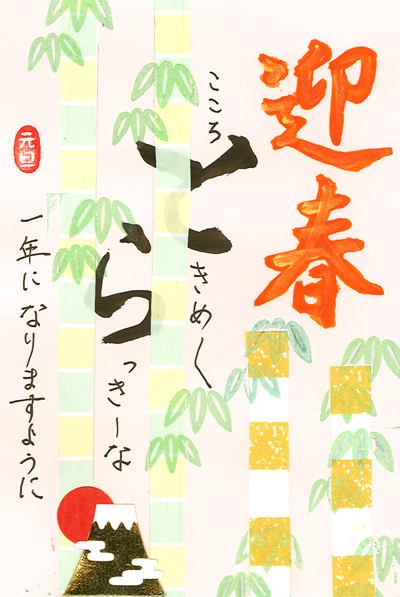 迎春
こころ
ときめく
らっきーな
一年になりますように
元旦